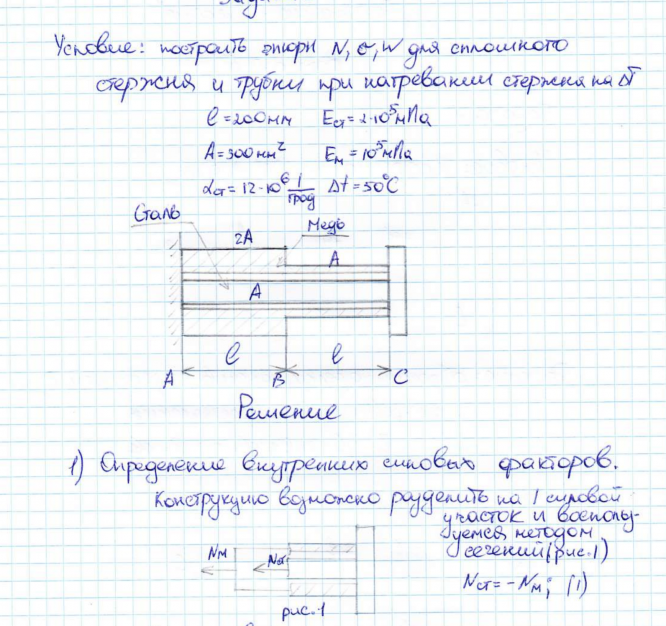 Условие: построить эпюры N, σ, W для сплошного
стержня и трубки при нагревании стержня на ΔT
l=200мм Eст=2·10⁵мПа
A=300мм² Eм=10⁵мПа
αст=12·10⁶ 1/град Δt=50°C
Сталь
2A
Медь
A
A
l
l
A
B
C
Решение
1) Определение внутренних силовых факторов.
Конструкцию возможно разделить на 1 силовой
участок и восполь-
уемся методом
сечений (рис.1)
Nм
Nст
Nст=-Nм; (1)
рис.1